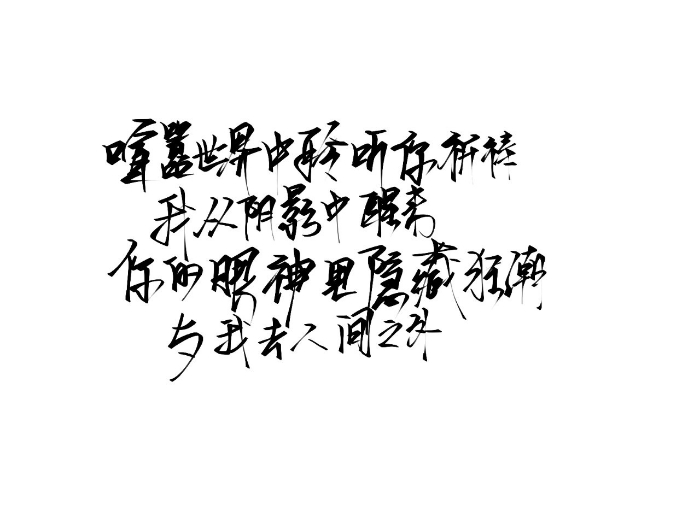 喧嚣世界中聆听你祈祷
我从阴影中醒来
你的眼神里隐藏狂潮
与我去人间之外